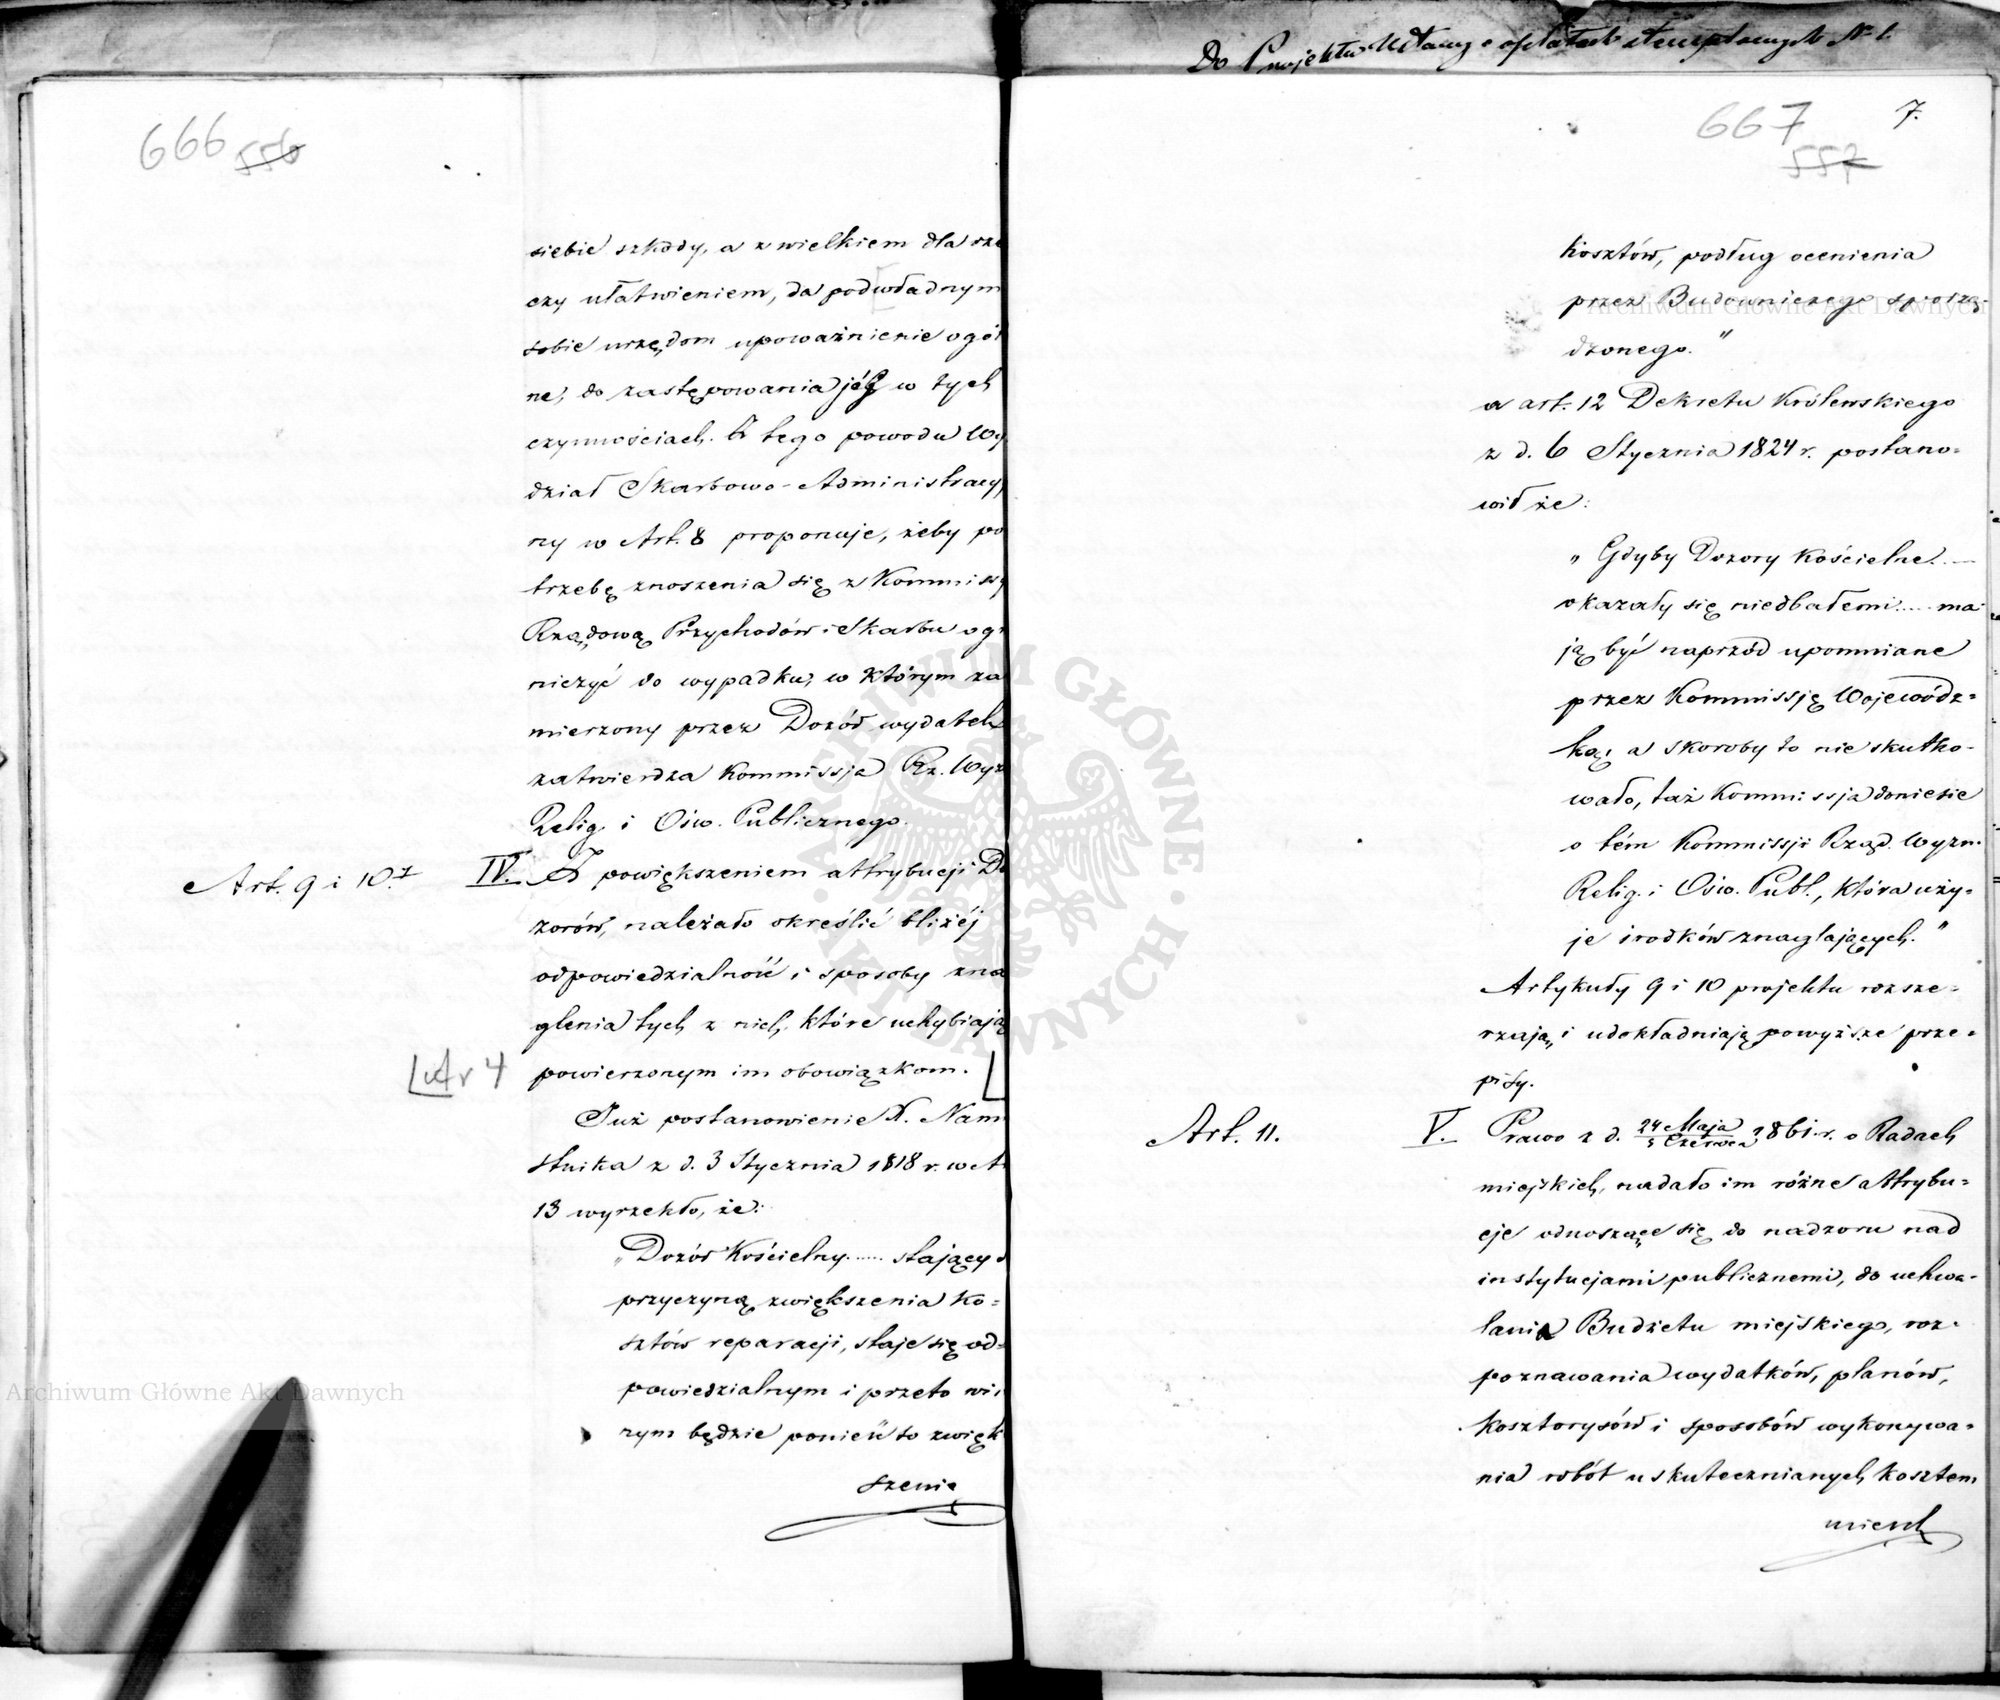 666 556
siebie szkody, a z wielkiem dla rze
czy ułatwieniem, da podwładnym
sobie urzędom upoważnienie ogól
ne, do zastępowania jéj w tych
czynnościach. Z tego powodu Wy
dział Skarbowo-Administracyj
ny w Art. 8 proponuje, żeby po
trzebę znoszenia się z Kommissyą
Rządową Przychodów i Skarbu ogr
niczyć do wypadku, w którym za
mierzony przez Dozór wydatek
zatwierdza Kommissja Rz. Wyz
Relig. i Ośw. Publicznego.
Art. 9 i 10.
IV. Z powiększeniem attrybucji Do
zorów, należało określić bliżéj
odpowiedzialność i sposoby zna
glenia tych z nich, które uchybiają
powierzonym im obowiązkom.
Ar 4
Już postanowienie X. Namie
stnika z d. 3 Stycznia 1818 r. w At
13 wyrzekło, że:
„Dozór Kościelny...... stający s
przyczyną zwiększenia ko=
sztów reparacji, staje się od=
powiedzialnym i przeto wi
nym będzie ponieść to zwięk
szenie
Archiwum Główne Akt Dawnych
Do Projektu Ustawy o opłatach stemplowych N. 1.
667 7.
557
kosztów, podług ocenienia
przez Budowniczego sporzą-
dzonego."
a art. 12 Dekretu Królewskiego
z d. 6 Stycznia 1824 r. postano=
wił że:
„Gdyby Dozory Kościelne....
okazały się niedbałemi.... ma
ją być naprzód upomniane
przez Kommissję Wojewódz=
ką; a skoroby to nie skutko-
wało, taż Kommissja doniesie
o tém Kommissji Rząd. Wyzn.
Relig. i Ośw. Publ., która uży=
je środków znaglających."
Artykuły 9 i 10 projektu rozsze=
rzają, i udokładniają powyższe prze=
pisy.
Art. 11.
V. Prawo z d. 24 Maja / 5 Czerwca 1861 r. o Radach
miejskich, nadało im różne attrybu=
cje odnoszące się do nadzoru nad
instytucjami publicznemi, do uchwa-
lania Budżetu miejskiego, roz-
poznawania wydatków, planów,
kosztorysów i sposobów wykonywa=
nia robót uskutecznianych kosztem
miesk
Archiwum Główne Akt Dawnych
ARCHIWUM GŁÓWNE AKT DAWNYCH